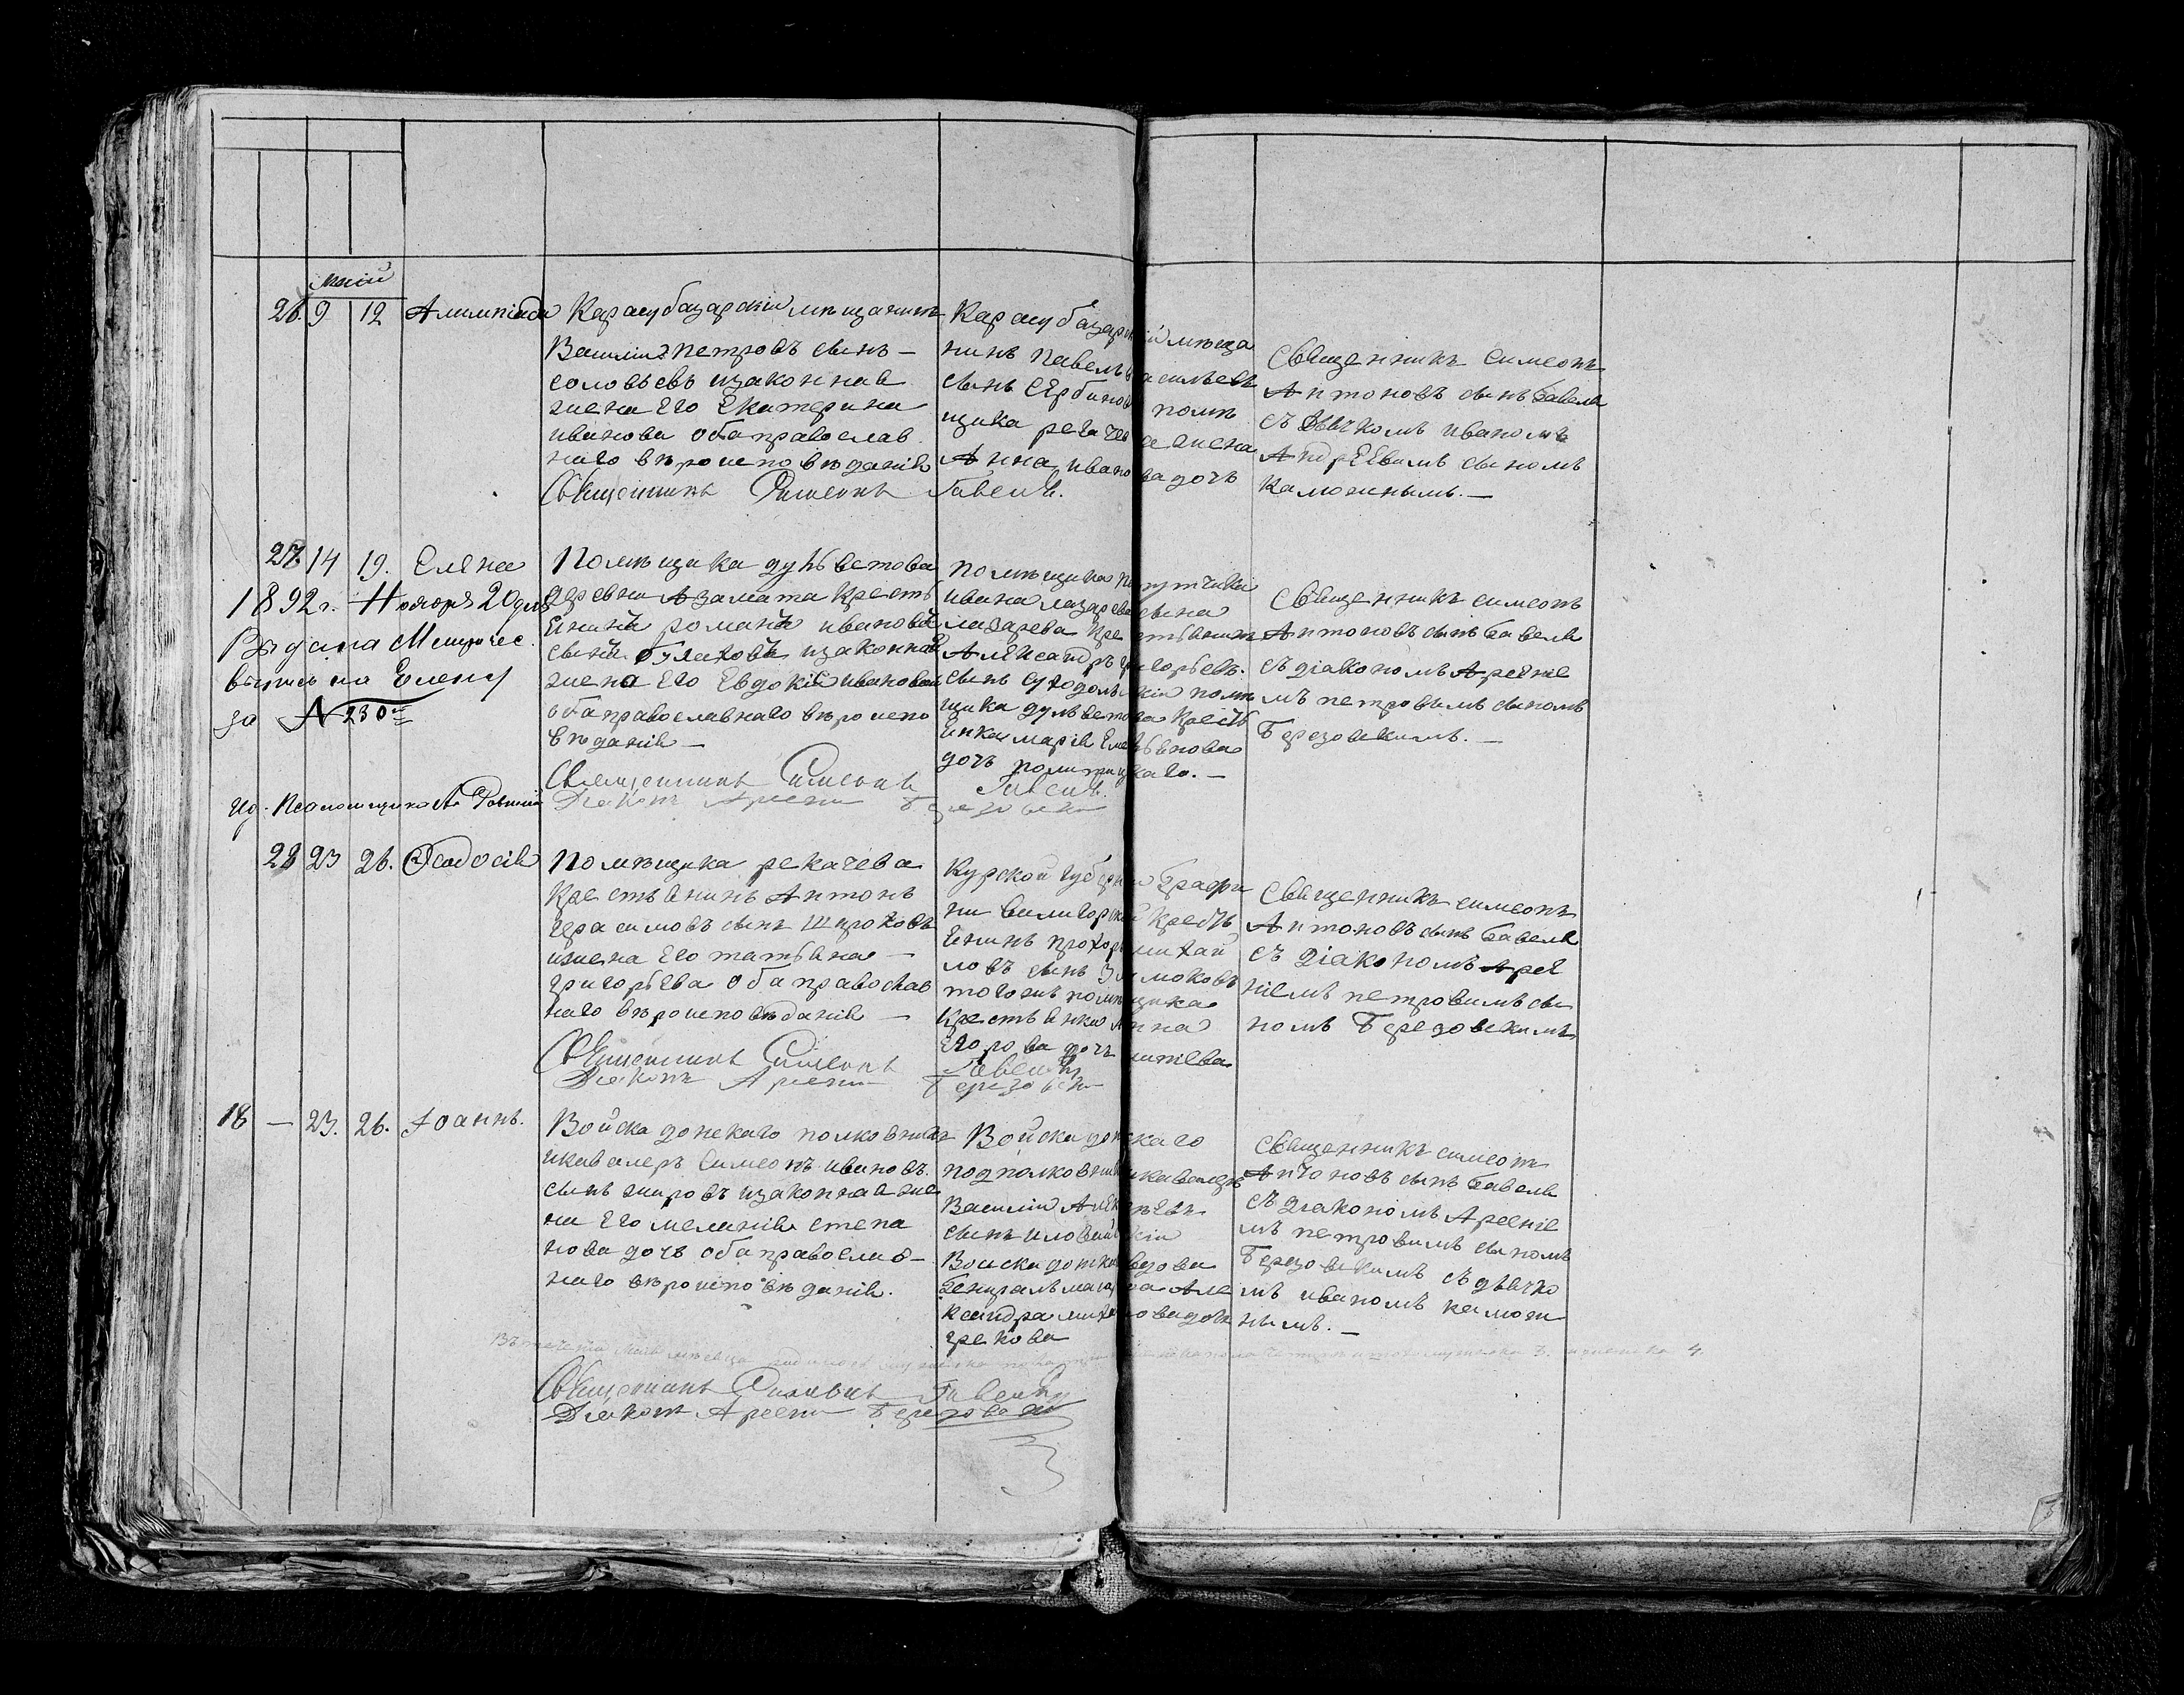 Маій
26. 9 12 Алимпіада
Карасубазарскій мѣщанинъ
Василій Петровъ сынъ –
Соловьевъ изаконная
жена Его Екатерина
иванова оба православ
наго вѣроисповѣданія
Священникъ Симеонъ Гавель.
Карасубазарскій мѣща
нинъ Павелъ васильевъ
сынъ Сербинов помѣ
щика регачева жена
Анна иванова дочь
Священникъ Симеонъ
Антоновъ сынъ Гавель
съ Дьячкомъ иваномъ
Андреевымъ сыномъ
Каможнымъ. –
27. 14 19. Елена
1892 г. Ноября 20 дня
Выдана Метричес.
выпись на Елену
за № 230
ид. Псаломщика А.
Помѣщика дульветова
деревни Азамата Кресть
Енинъ романъ ивановъ
сынъ булаховъ изаконная
жена Его Евдокія иванова
оба православнаго вѣроиспо
вѣданія –
Священникъ Симеонъ Гавель.
Діаконъ Арсени Березовски
помѣщика
ивана лазарева сына
лазарева крестьянинъ
Александръ григорьевъ.
сынъ суходольскій помѣ
щика дульветова кресть
Енка марія Емельянова
дочь полтрицкаго. –
Священникъ симеонъ
Антоновъ сынъ Гавель
съ діакономъ Арсение
мъ петровымъ сыномъ
Березовскимъ. –
28 23 26. Феодосія
Помѣщика рекачева
Крестьянинъ Антонъ
герасимовъ сынъ Шпроховъ
ижена Его татьяна –
григорьева оба православ
наго вѣроисповѣданія –
Священникъ Симеонъ Гавель
Діаконъ Арсени Березовски
Курской губерніи Графи
ни вилигорской кресть
Енинъ прохоръ михай
ловъ сынъ Зимоковъ
тогожъ помѣщика
крестьянка Анна
Егорова дочь
Священникъ симеонъ
Антоновъ сынъ Гавель
съ Діакономъ Арсе
ніемъ петровымъ сы
номъ Березовскимъ
18 – 23. 26. Іоаннъ.
Войска донскаго полковникъ
икавалеръ Симеонъ ивановъ.
сынъ жировъ изаконная же
на Его меланія степа
нова дочь оба православ–
наго вѣроисповѣданія.
Войска донскаго
подполковникъ икавалеръ
Василій Алексѣевъ
сынъ иловайскій
Воиска донска вдова
Генералъ маіорша Але
ксандра михайлова дочь
грекова
Священникъ симеонъ
Антоновъ сынъ Гавель
съ діакономъ Арсение
мъ петровымъ сыномъ
Березовскимъ съ дьячко
мъ иваномъ камож
нымъ. –
Священникъ Симеонъ Гавель
Діаконъ Арсени Березовски